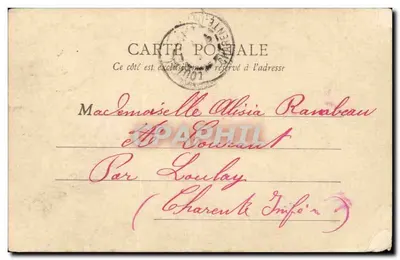 CARTE POSTALE
Ce côté est exclusivement réservé à l'adresse
Mademoiselle Alisia Ravabeau
A Courant
Par Loulay
(Charente Infre)